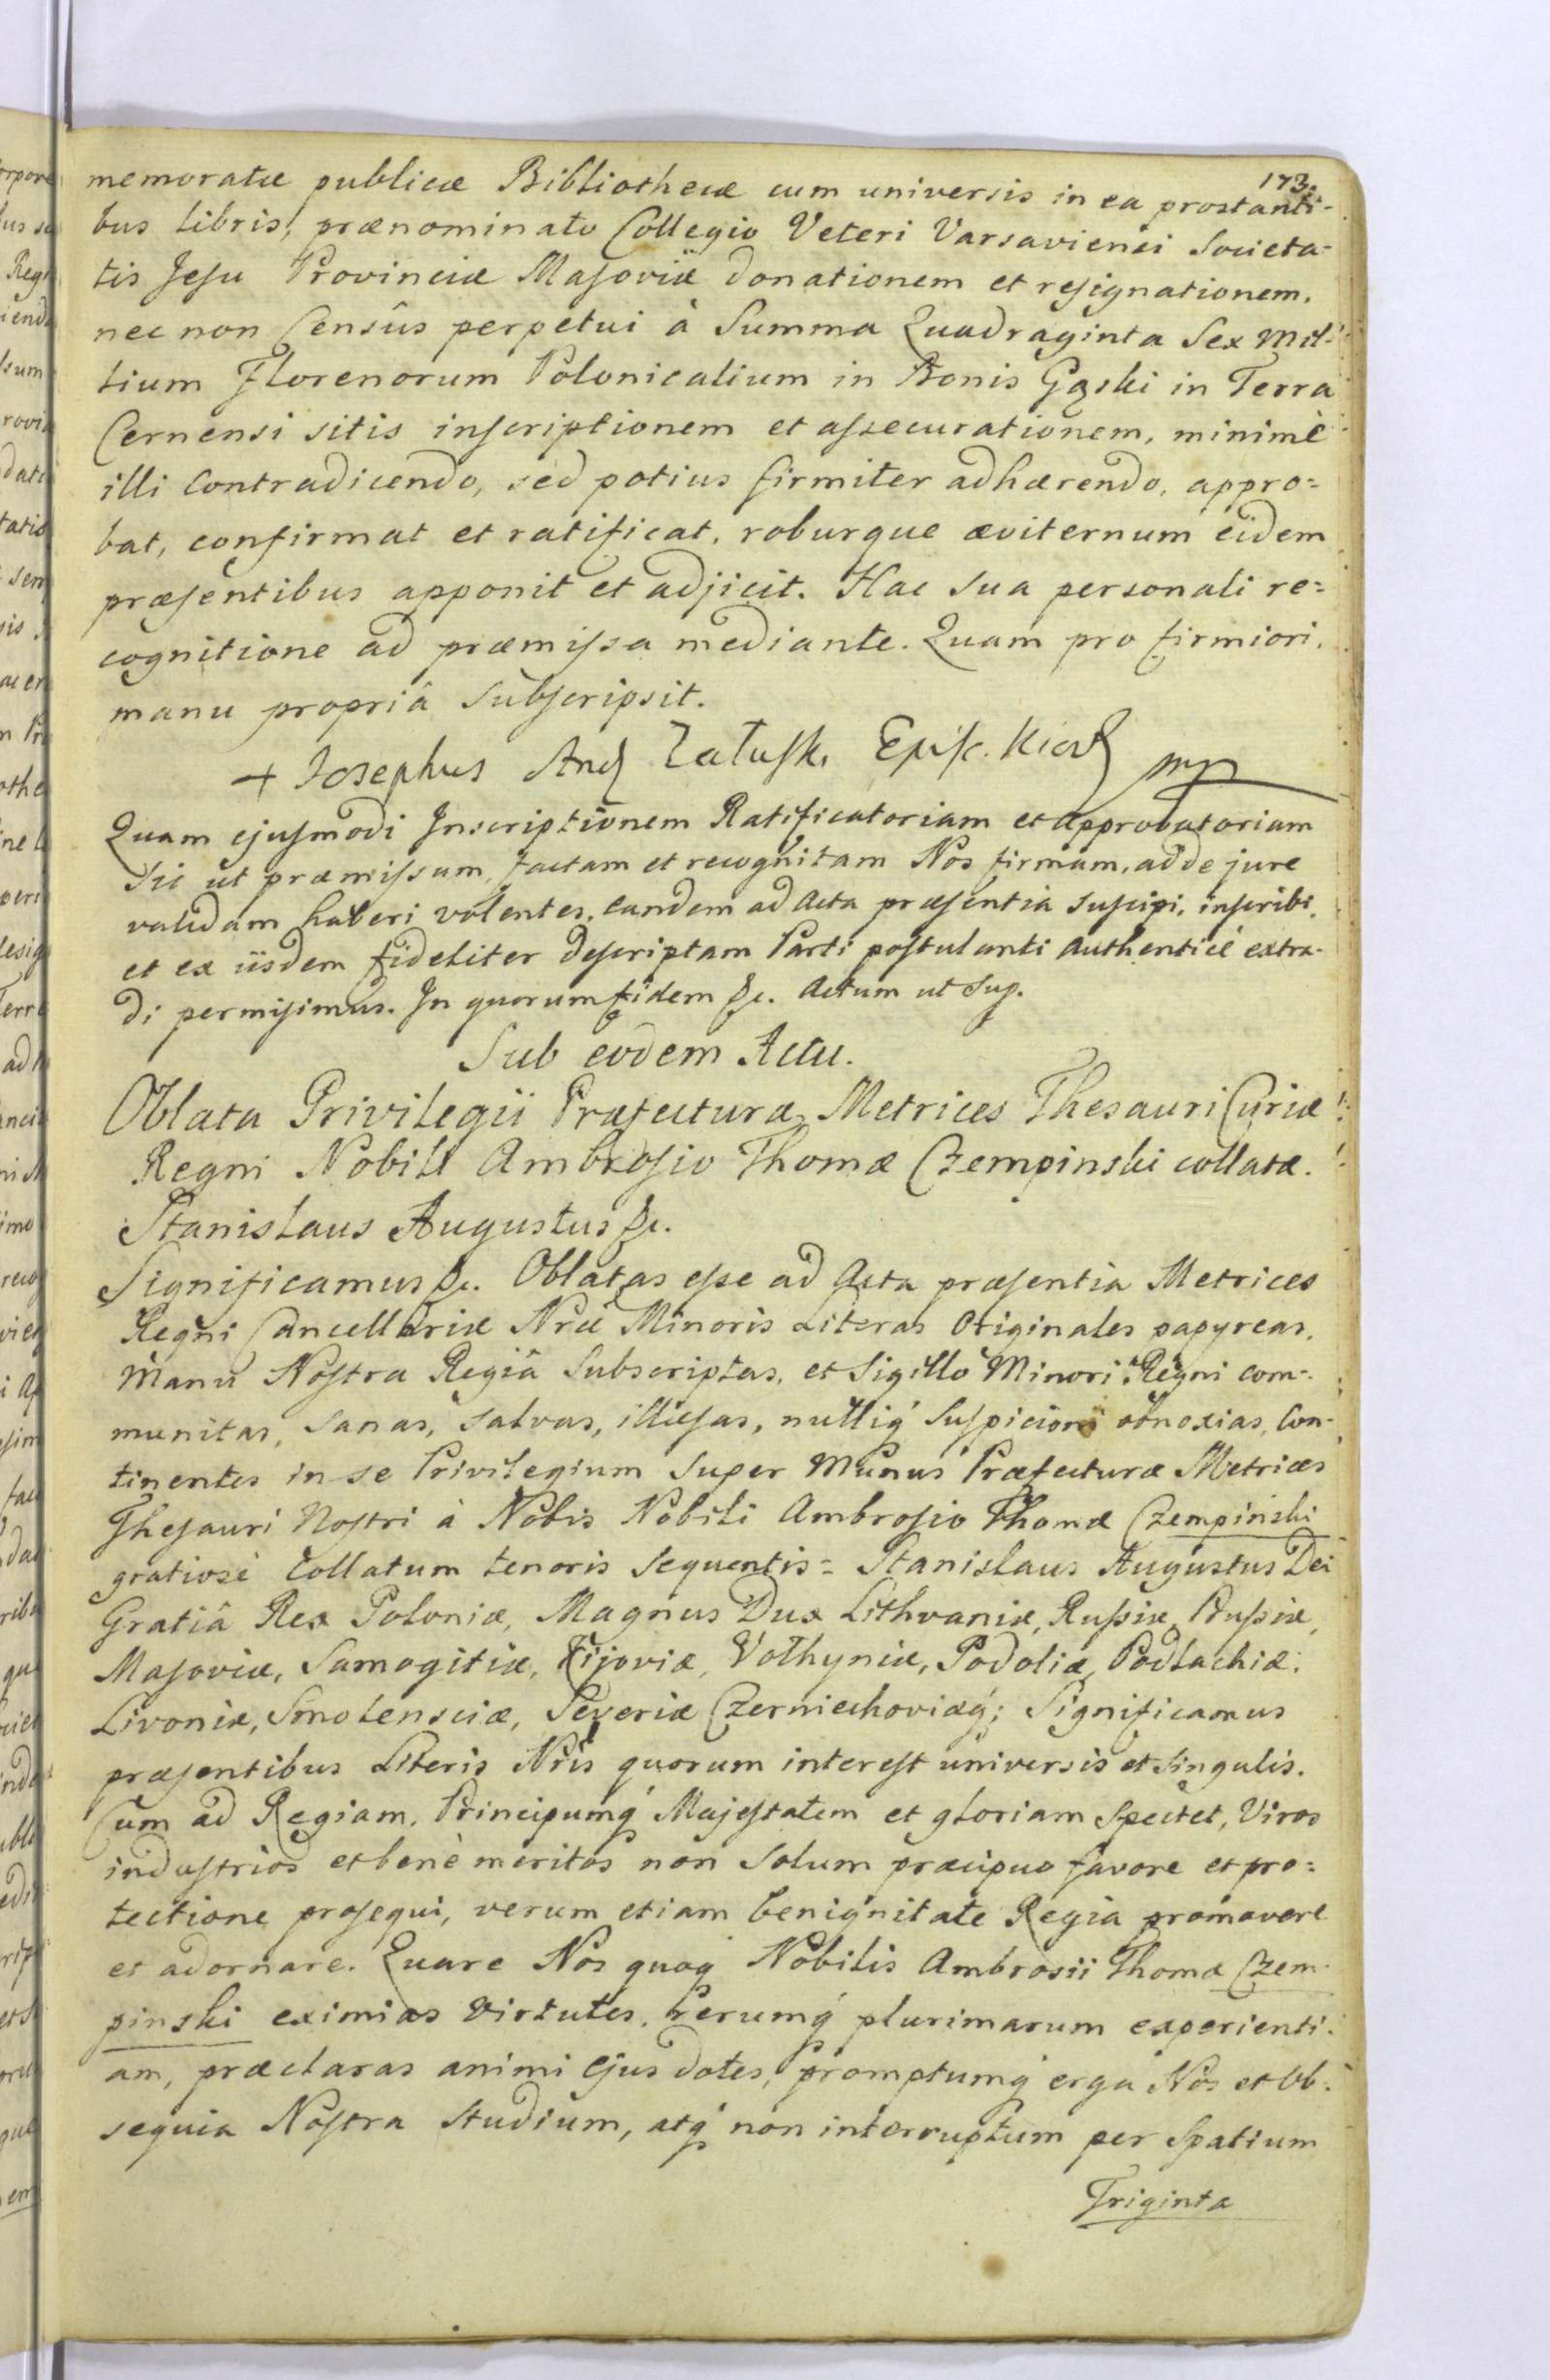 173.
memoratæ publicæ Bibliothecæ cum universis in ea prostanti-
bus Libris, prænominato Collegio Veteri Varsaviensi Societa-
tis Jesu Provinciæ Masoviæ donationem et resignationem,
nec non Censûs perpetui à Summa Quadraginta Sex Mil-
lium Florenorum Polonicalium in Bonis Gąski in Terra
Cernensi sitis inscriptionem et assecurationem, minimè
illi Contradicendo, sed potius firmiter adhærendo, appro=
bat, confirmat et ratificat, roburque æviternum eidem
præsentibus apponit et adjicit. Hac Sua personali re=
cognitione ad præmissa mediante. Quam pro firmiori,
manu propriâ Subscripsit.
+ Josephus And Załuski Episc. Kiov mp
Quam ejusmodi Inscriptionem Ratificatoriam et approbatoriam
sic ut præmissum, factam et recognitam Nos firmam, ad de jure
validam haberi volentes, eandem ad Acta præsentia suscipi, inscribi,
et ex iisdem fideliter descriptam Parti postulanti Authenticè extra-
di permisimus. In quorum fidem &c. Actum ut Sup.
Sub eodem Actu.
Oblata Privilegii Præfecturæ Metrices Thesauri Curiæ
Regni Nobili Ambrosio Thomæ Czempinski collatæ.
Stanislaus Augustus &c.
Significamus &c. Oblatas esse ad Acta præsentia Metrices
Regni Cancellariæ Nræ Minoris Literas Originales papyreas,
Manu Nostra Regiâ Subscriptas, et Sigillo Minori Regni com-
munitas, Sanas, Salvas, illæsas, nulliq́ Suspicioni obnoxias, Con-
tinentes in se Privilegium Super Munus Præfecturæ Metrices
Thesauri Nostri à Nobis Nobili Ambrosio Thomæ Czempinski
gratiosè Collatum tenoris Sequentis = Stanislaus Augustus Dei
Gratiâ Rex Poloniæ, Magnus Dux Lithvaniæ, Russiæ, Prussiæ,
Masoviæ, Samogitiæ, Kijoviæ, Volhyniæ, Podoliæ, Podlachiæ,
Livoniæ, Smolensciæ, Severiæ Czerniechoviæq́; Significamus
præsentibus Literis Nris quorum interest universis et Singulis.
Cum ad Regiam, Principumq́ Majestatem et gloriam Spectet, Viros
industrios et benè meritos non Solum præcipuo favore et pro=
tectione prosequi, verum etiam benignitate Regia promovere
et adornare. Quare Nos quoq́ Nobilis Ambrosii Thomæ Czem-
pinski eximias Virtutes, rerumq́ plurimarum experienti-
am, præclaras animi Ejus dotes, promptumq́ erga Nos et Ob-
sequia Nostra Studium, atq́ non interruptum per Spatium
Triginta